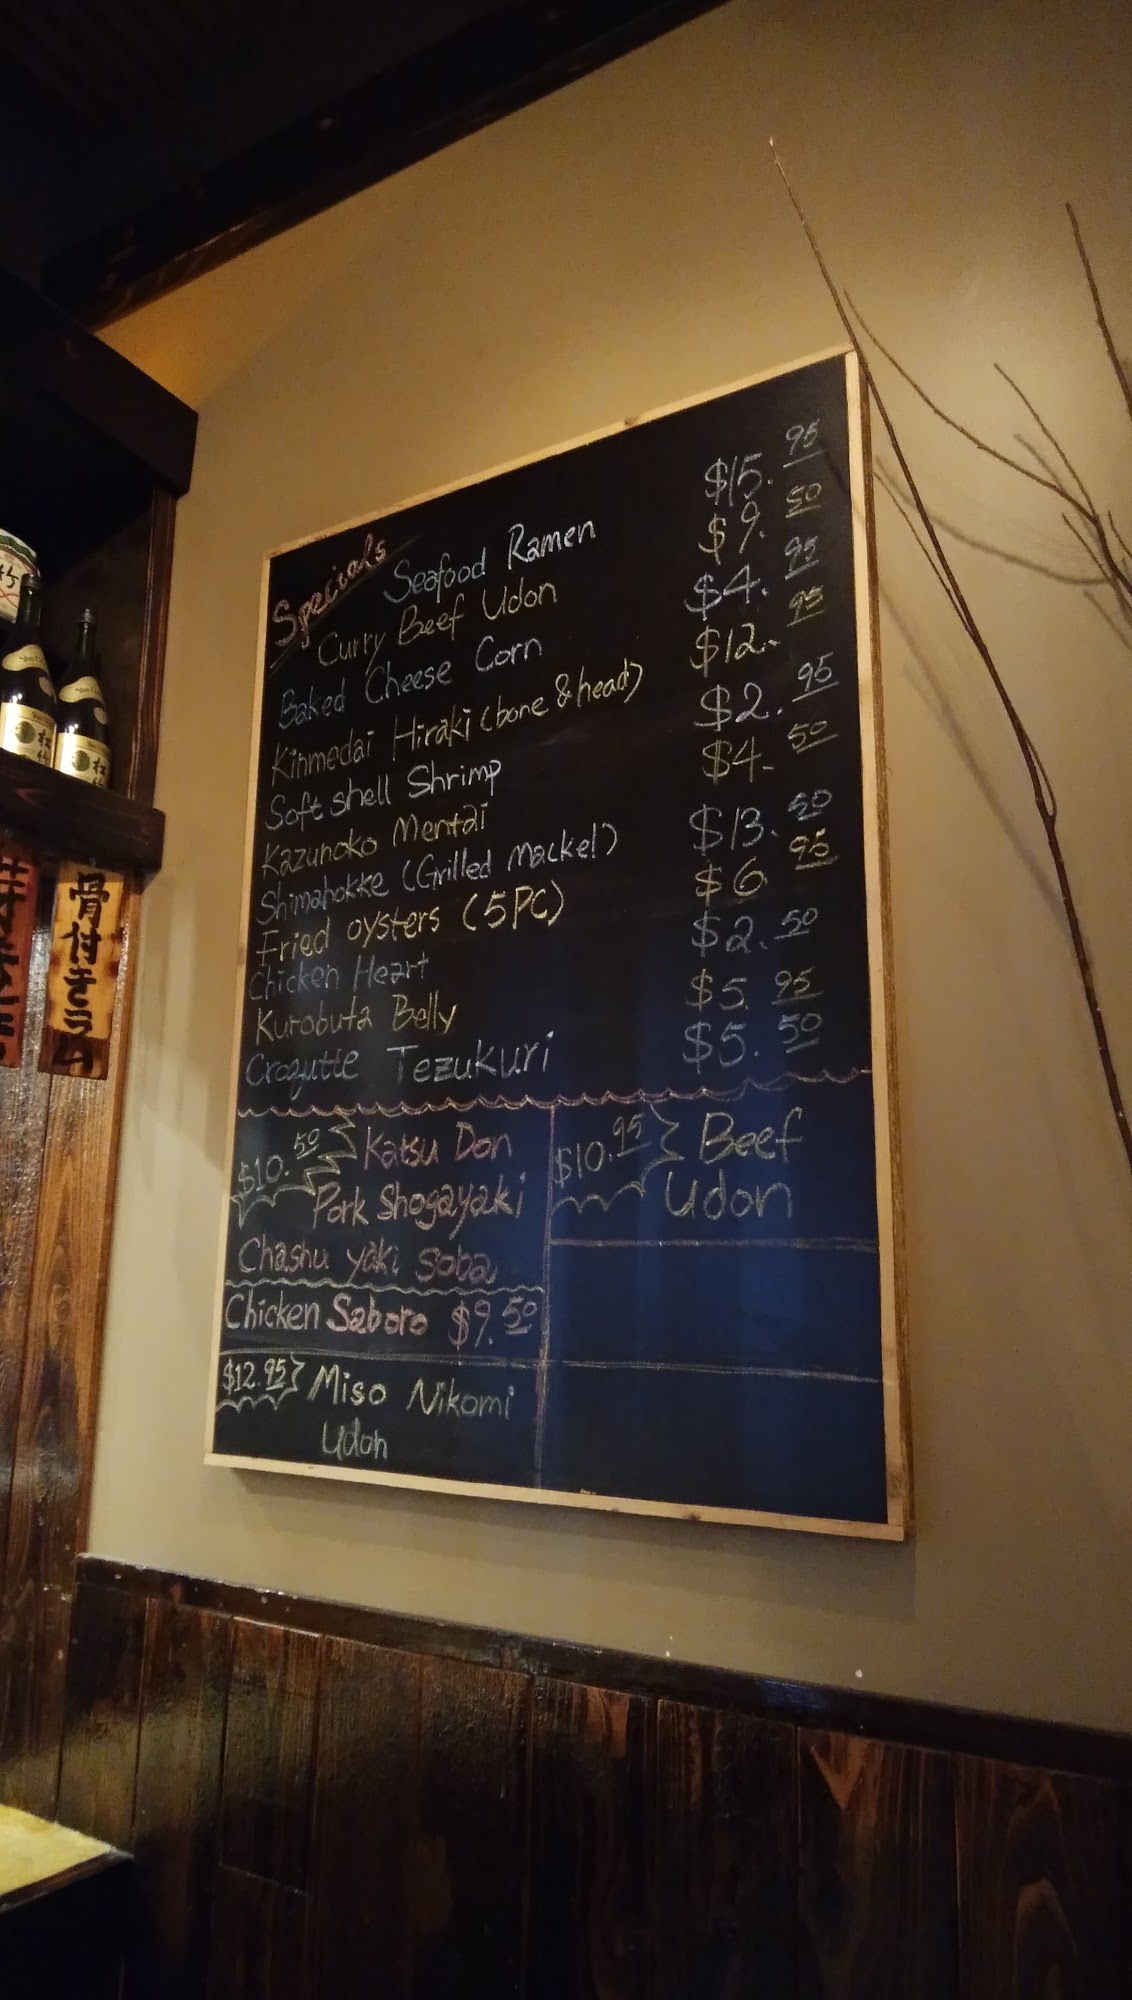 Specials
Seafood Ramen $15.95
Curry Beef Udon $9.50
Baked Cheese Corn $4.95
Kinmedai Hiraki (bone & head) $12.95
Soft shell Shrimp $2.95
Kazunoko Mentai $4.50
Shimahokke (Grilled Mackel) $13.50
Fried oysters (5PC) $6.95
Chicken Heart $2.50
Kurobuta Belly $5.95
Croqutte Tezukuri $5.50
$10.50 Katsu Don
Pork Shogayaki
Chashu yaki Soba
Chicken Saboro $9.50
$12.95 Miso Nikomi
Udon
$10.95 Beef
Udon
骨付きラム